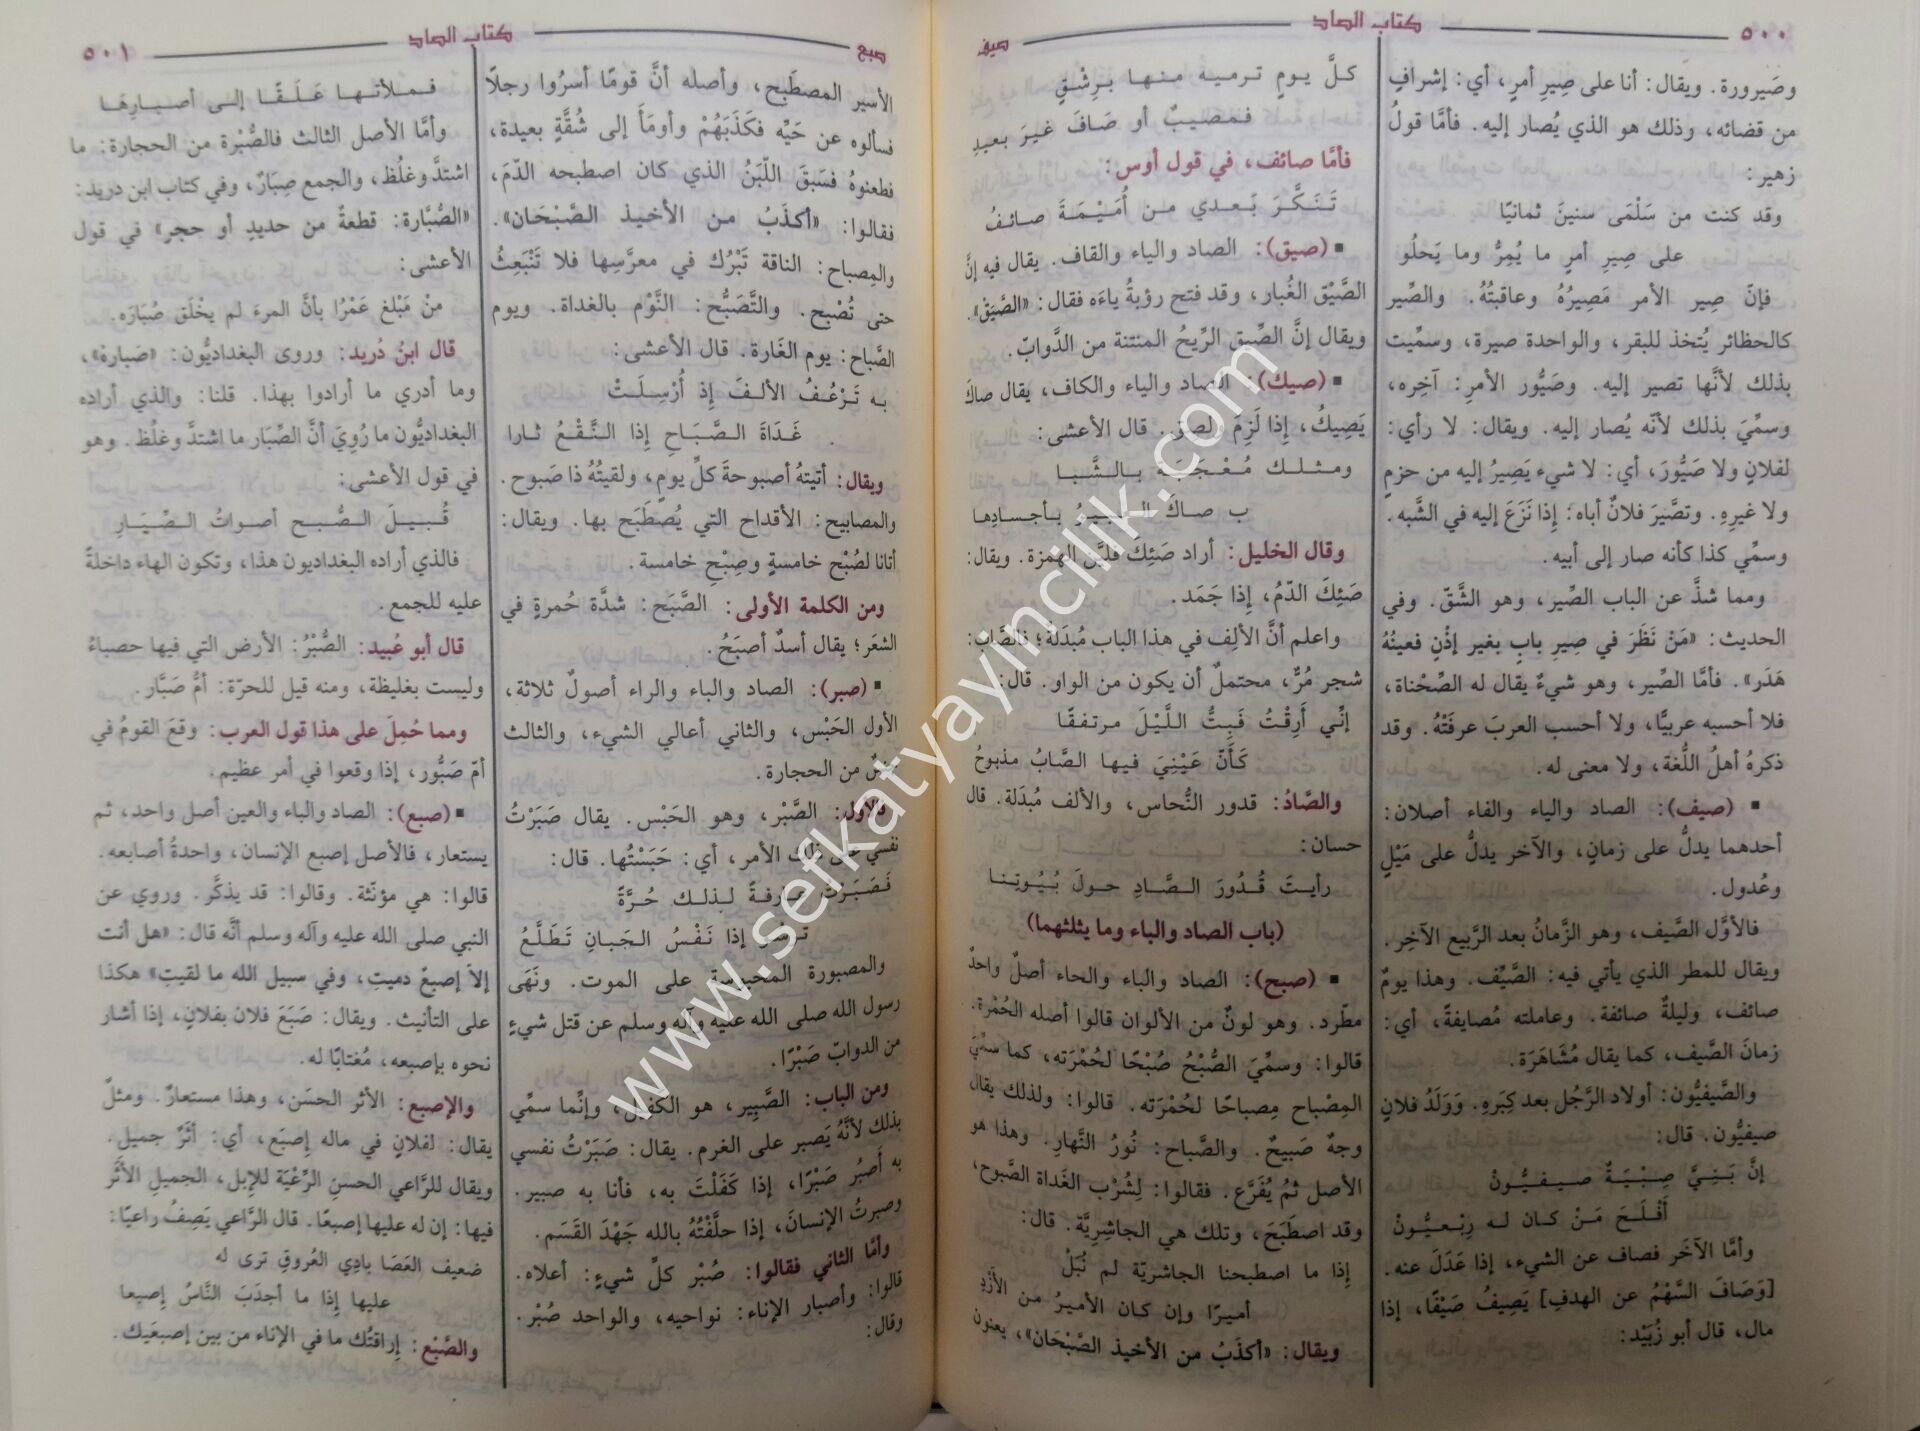 ٥٠٠
كتاب الصاد
صيف
وصَيرورة. ويقال: أنا على صِيرِ أمرٍ، أي: إشرافٍ
من قضائه، وذلك هو الذي يُصار إليه. فأمَّا قولُ
زهير:
وقد كنت من سَلْمَى سنينَ ثمانيًا
على صِيرِ أمرٍ ما يُمِرُّ وما يَحلُو
فإنّ صِير الأمر مَصِيرُهُ وعاقبتُهُ. والصِّير
كالحظائر يُتخذ للبقر، والواحدة صيرة، وسمِّيت
بذلك لأنَّها تصير إليه. وصَيُّور الأمرِ: آخِره،
وسمِّيَ بذلك لأنّه يُصار إليه. ويقال: لا رأي:
لفلانٍ ولا صَيُّورَ، أي: لا شيء يَصِيرُ إليه من حزمٍ
ولا غيرِهِ. وتصَّيرَ فلانٌ أباه: إذا نَزَعَ إليه في الشَّبه.
وسمِّي كذا كأنه صار إلى أبيه.
ومما شذَّ عن الباب الصِّير، وهو الشَّقّ. وفي
الحديث: «مَنْ نَظَرَ في صِيرِ بابٍ بغير إذْنٍ فعينُهُ
هَدَر». فأمَّا الصِّير، وهو شيءٌ يقال له الصِّحْناة،
فلا أحسبه عربيًّا، ولا أحسب العربَ عرفَتْهُ. وقد
ذكرهُ أهلُ اللُّغة، ولا معنى له.
▪ (صيف): الصاد والياء والفاء أصلان:
أحدهما يدلُّ على زمانٍ، والآخر يدلُّ على مَيْلٍ
وعُدول.
فالأوَّل الصَّيف، وهو الزَّمانُ بعد الرَّبيع الآخِر.
ويقال للمطر الذي يأتي فيه: الصَّيِّف. وهذا يومٌ
صائف، وليلةٌ صائفة. وعاملته مُصايفةً، أي:
زمانَ الصَّيف، كما يقال مُشَاهَرَة.
والصَّيفيُّون: أولاد الرَّجُل بعد كِبَرِهِ. وَوَلَدُ فلانٍ
صيفيُّون. قال:
إنَّ بَنِيَّ صِبْيَةٌ صيفيُّونْ
أَفْلَحَ مَنْ كان له رِبْعيُّونْ
وأمَّا الآخَر فصاف عن الشيء، إذا عَدَلَ عنه.
[وَصَافَ السَّهْمُ عن الهدفِ] يَصِيفُ صَيْفًا، إذا
مال، قال أبو زُبَيْد:
كلَّ يومٍ ترميه منها برِشْقٍ
فمصيبٌ أو صَافَ غيرَ بعيدِ
فأمَّا صائف، في قول أوس:
تَنَكَّرَ بَعدي من أُمَيْمَةَ صائفُ
▪ (صيق): الصاد والياء والقاف. يقال فيه إنَّ
الصِّيْق الغُبار، وقد فتح رؤبةُ ياءَه فقال: «الصِّيَقْ».
ويقال إنَّ الصِّيق الرِّيحُ المنتنة من الدَّوابّ.
▪ (صيك): الصاد والياء والكاف، يقال صاكَ
يَصِيكُ، إذا لَزِمَ لصق. قال الأعشى:
ومثلك مُعْجَبَة بالشَّبا
ب صاك العبيرُ بأجسادِها
وقال الخليل: أراد صَئِكَ فليّن الهمزة. ويقال:
صَئِكَ الدّمُ، إذا جَمَد.
واعلم أنَّ الألِف في هذا الباب مُبدَلة؛ فالصَّاب:
شجر مُرٌّ، محتملٌ أن يكون من الواو. قال:
إنّي أَرِقْتُ فَبِتُّ اللَّيْلَ مرتفقًا
كَأنّ عَيْنِيَ فيها الصَّابُ مذبوحُ
والصَّادُ: قدور النُّحاس، والألف مُبدَلة. قال
حسان:
رأيتَ قُدُورَ الصَّادِ حولَ بُيُوتِنا
(باب الصاد والباء وما يثلثهما)
▪ (صبح): الصاد والباء والحاء أصلٌ واحدٌ
مطّرد. وهو لونٌ من الألوان قالوا أصله الحُمْرة.
قالوا: وسمِّيَ الصُّبْحُ صُبْحًا لحُمْرَته، كما سمِّيَ
المِصْباح مِصباحًا لحُمْرَته. قالوا: ولذلك يقال
وجهٌ صَبِيحٌ. والصَّباح: نُورُ النَّهار. وهذا هو
الأصل ثمُ يُفَرَّع. فقالوا: لِشُرْب الغَداة الصَّبوح،
وقد اصطَبَحَ، وتلك هي الجاشِريَّة. قال:
إذا ما اصطبحنا الجاشريّة لم نُبَلْ
أميرًا وإن كان الأميرُ من الأَزْدِ
ويقال: «أكذَبُ من الأخيذ الصَّبْحَان»، يعنون
صبع
كتاب الصاد
٥٠١
الأسير المصطَبِح، وأصله أنَّ قومًا أسرُوا رجلًا
فسألوه عن حَيِّه فكَذَبَهُمْ وأومَأ إلى شُقَّةٍ بعيدة،
فطعنوهُ فسَبقَ اللّبَنُ الذي كان اصطبحه الدّمَ،
فقالوا: «أكذَبُ من الأخيذ الصَّبْحَان».
والمِصباح: الناقة تَبْرُك في معرَّسِها فلا تَنْبَعِثُ
حتى تُصْبح. والتَّصَبُّح: النَّوْم بالغداة. ويوم
الصَّباح: يوم الغَارة. قال الأعشى:
به تَرْعُفُ الألفَ إذ أُرْسِلَتْ
غَدَاةَ الصَّبَاحِ إذا النَّقْعُ ثارا
ويقال: أتيتهُ أصبوحةَ كلِّ يومٍ، ولقيتُهُ ذا صَبوح.
والمصابيح: الأقداح التي يُصْطَبَح بها. ويقال:
أتانا لصُبْح خامسةٍ وصِبْحِ خامسة.
ومن الكلمة الأولى: الصَّبَح: شدَّة حُمرةٍ في
الشعَر؛ يقال أسدٌ أصبَحُ.
▪ (صبر): الصاد والباء والراء أصولٌ ثلاثة،
الأول الحَبْس، والثاني أعالي الشيء، والثالث
جنسٌ من الحجارة.
فالأول: الصَّبْر، وهو الحَبْس. يقال صَبَرْتُ
نفسي على ذلك الأمر، أي: حَبَسْتُها. قال:
فَصَبَرْت عارفةً لذلك حُرَّةً
ترسُو إذا نَفْسُ الجَبانِ تَطَلَّعُ
والمصبورة المحبوسة على الموت. ونَهَى
رسول الله صلى الله عليه وآله وسلم عن قتل شيءٍ
من الدوابّ صَبْرًا.
ومن الباب: الصَّبِير، هو الكفيل، وإنَّما سمِّي
بذلك لأنَّهُ يَصبر على الغرم. يقال: صَبَرْتُ نفسي
به أَصبُر صَبْرًا، إذا كَفَلْتَ به، فأنا به صبير.
وصبرتُ الإنسانَ، إذا حلَّفْتُهُ بالله جَهْدَ القَسَم.
وأمَّا الثاني فقالوا: صُبْر كلِّ شيءٍ: أعلاه.
قالوا: وأصبار الإناء: نواحيه، والواحد صُبْر.
وقال:
فملأتها عَلَقًا إلى أصبارِهَا
وأمَّا الأصل الثالث فالصُّبْرة من الحجارة: ما
اشتدَّ وغلُظ، والجمع صِبَارٌ، وفي كتاب ابن دريد:
«الصُّبَّارة: قطعةٌ من حديدٍ أو حجرٍ» في قول
الأعشى:
منْ مَبْلغ عَمْرًا بأنَّ المرءَ لم يخْلَق صُبَارَه.
قال ابنُ دُريد: وروى البغداديُّون: «صَبارة»،
وما أدري ما أرادوا بهذا. قلنا: والذي أراده
البغداديُّون ما رُوِيَ أنَّ الصِّبَار ما اشتدَّ وغلُظ. وهو
في قول الأعشى:
قُبيلَ الصُّبح أصواتُ الصِّيَارِ
فالذي أراده البغداديون هذا، وتكون الهاء داخلةً
عليه للجمع.
قال أبو عُبيد: الصُّبْرُ: الأرض التي فيها حصباءُ
وليست بغليظة، ومنه قيل للحرّة: أمُّ صَبَّار.
ومما حُمِلَ على هذا قول العرب: وقعَ القومُ في
أمّ صَبُّور، إذا وقعوا في أمر عظيم.
▪ (صبع): الصاد والباء والعين أصل واحد، ثم
يستعار، فالأصل إصبع الإنسان، واحدةُ أصابعه.
قالوا: هي مؤنّثة. وقالوا: قد يذكَّر. وروي عن
النبي صلى الله عليه وآله وسلم أنَّه قال: «هل أنت
إلاّ إصبعٌ دميتِ، وفي سبيل الله ما لقيتِ» هكذا
على التأنيث. ويقال: صَبَعَ فلان بفلانٍ، إذا أشار
نحوه بإصبعه، مُغتابًا له.
والإصبع: الأثر الحسَن، وهذا مستعارٌ. ومثلٌ
يقال: لفلانٍ في ماله إصبَع، أي: أثَرٌ جميل.
ويقال للرَّاعي الحسنِ الرِّعْيَة للإبل، الجميلِ الأثَر
فيها: إن له عليها إصبعًا. قال الرَّاعي يَصِفُ راعيًا:
ضعيف العَصَا بادِي العُروقِ ترى له
عليها إذا ما أجدَبَ النَّاسُ إصبعا
والصَّبْع: إراقتُك ما في الإناء من بين إصبعَيك.
www.sefkatyayincilik.com